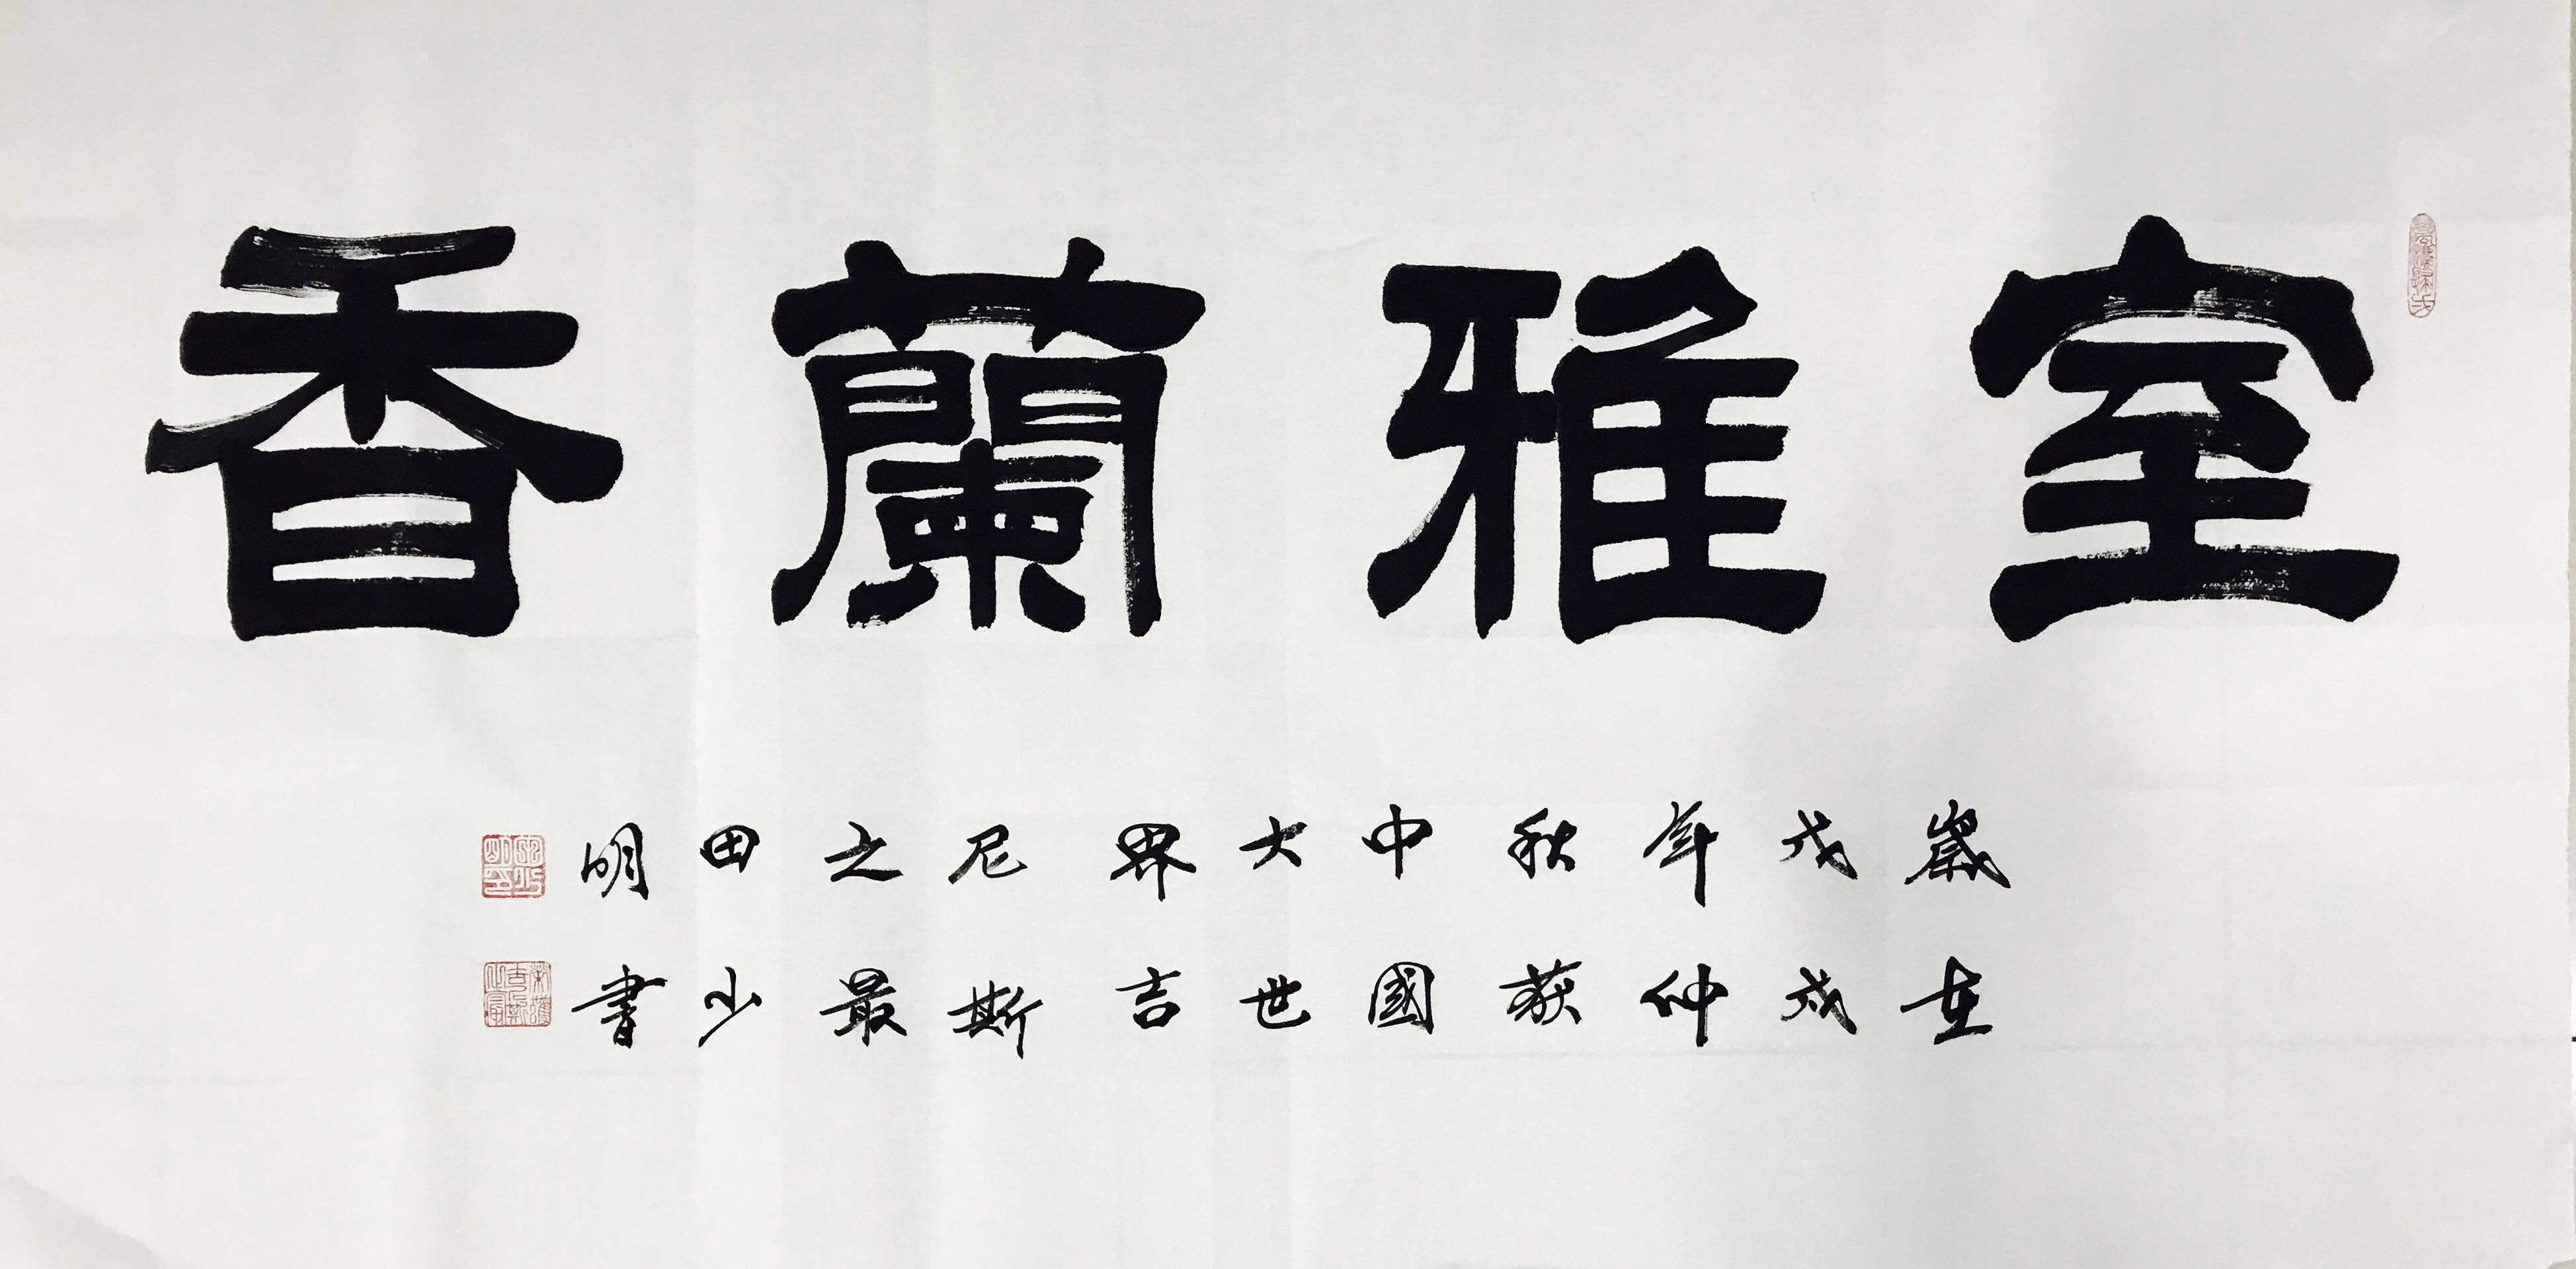 室雅蘭香
歲在
戊戌
年仲
秋获
中國
大世
界吉
尼斯
之最
田少
明書